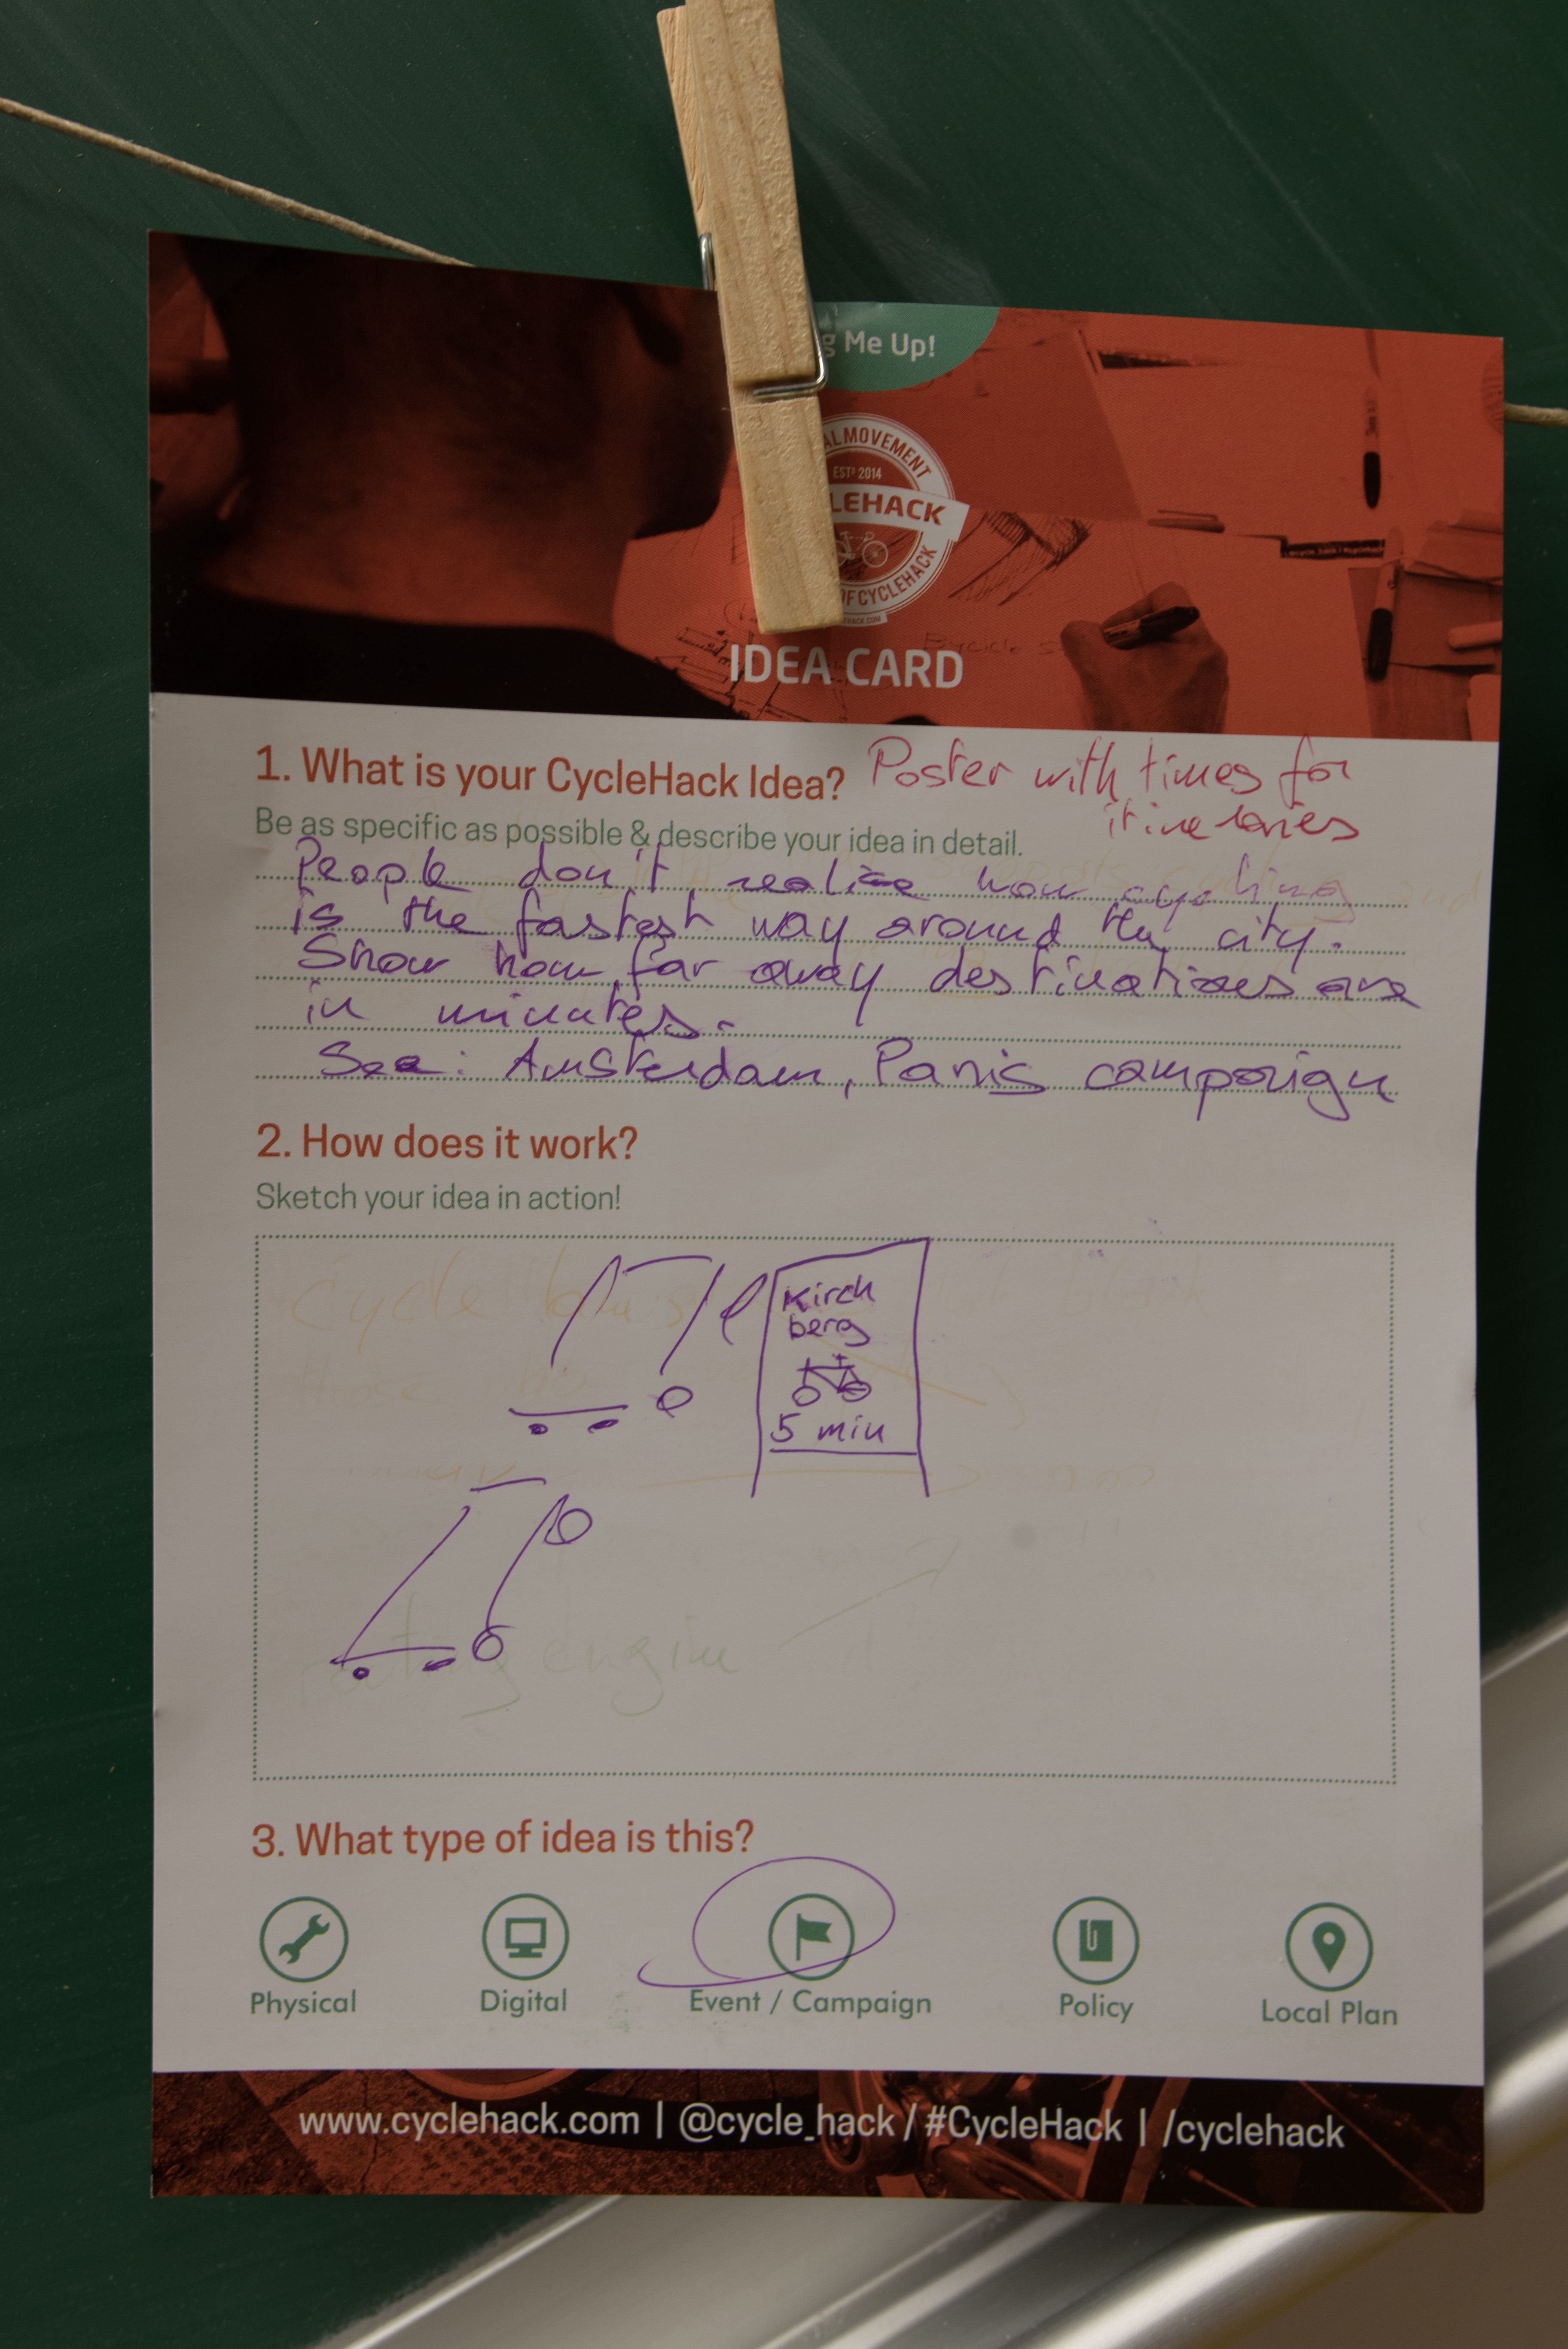 Me Up!
MOVEMENT
ESTD 2014
LEHACK
OF CYCLEHACK
IDEA CARD
1. What is your CycleHack Idea? Poster with times for
itineraries
Be as specific as possible & describe your idea in detail.
People don't realise how cycling
is the fastest way around the city.
Show how far away destinations are
in minutes.
See: Amsterdam, Paris campaign
2. How does it work?
Sketch your idea in action!
Kirch
berg
5 min
3. What type of idea is this?
Physical Digital Event / Campaign Policy Local Plan
www.cyclehack.com | @cycle_hack / #CycleHack | /cyclehack